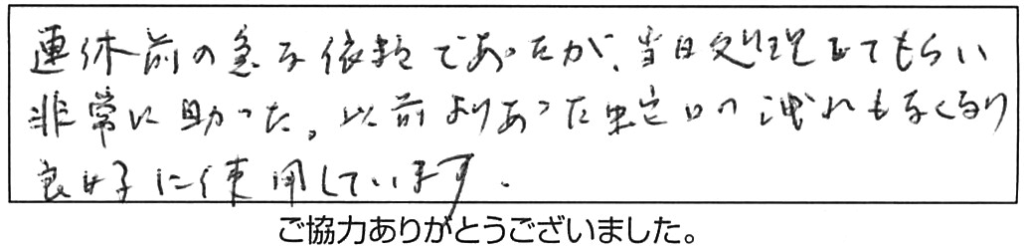 連休前の急な依頼であったが、当日処理をしてもらい
非常に助った。以前よりあった蛇口の洩れもなくなり
良好に使用しています。
ご協力ありがとうございました。